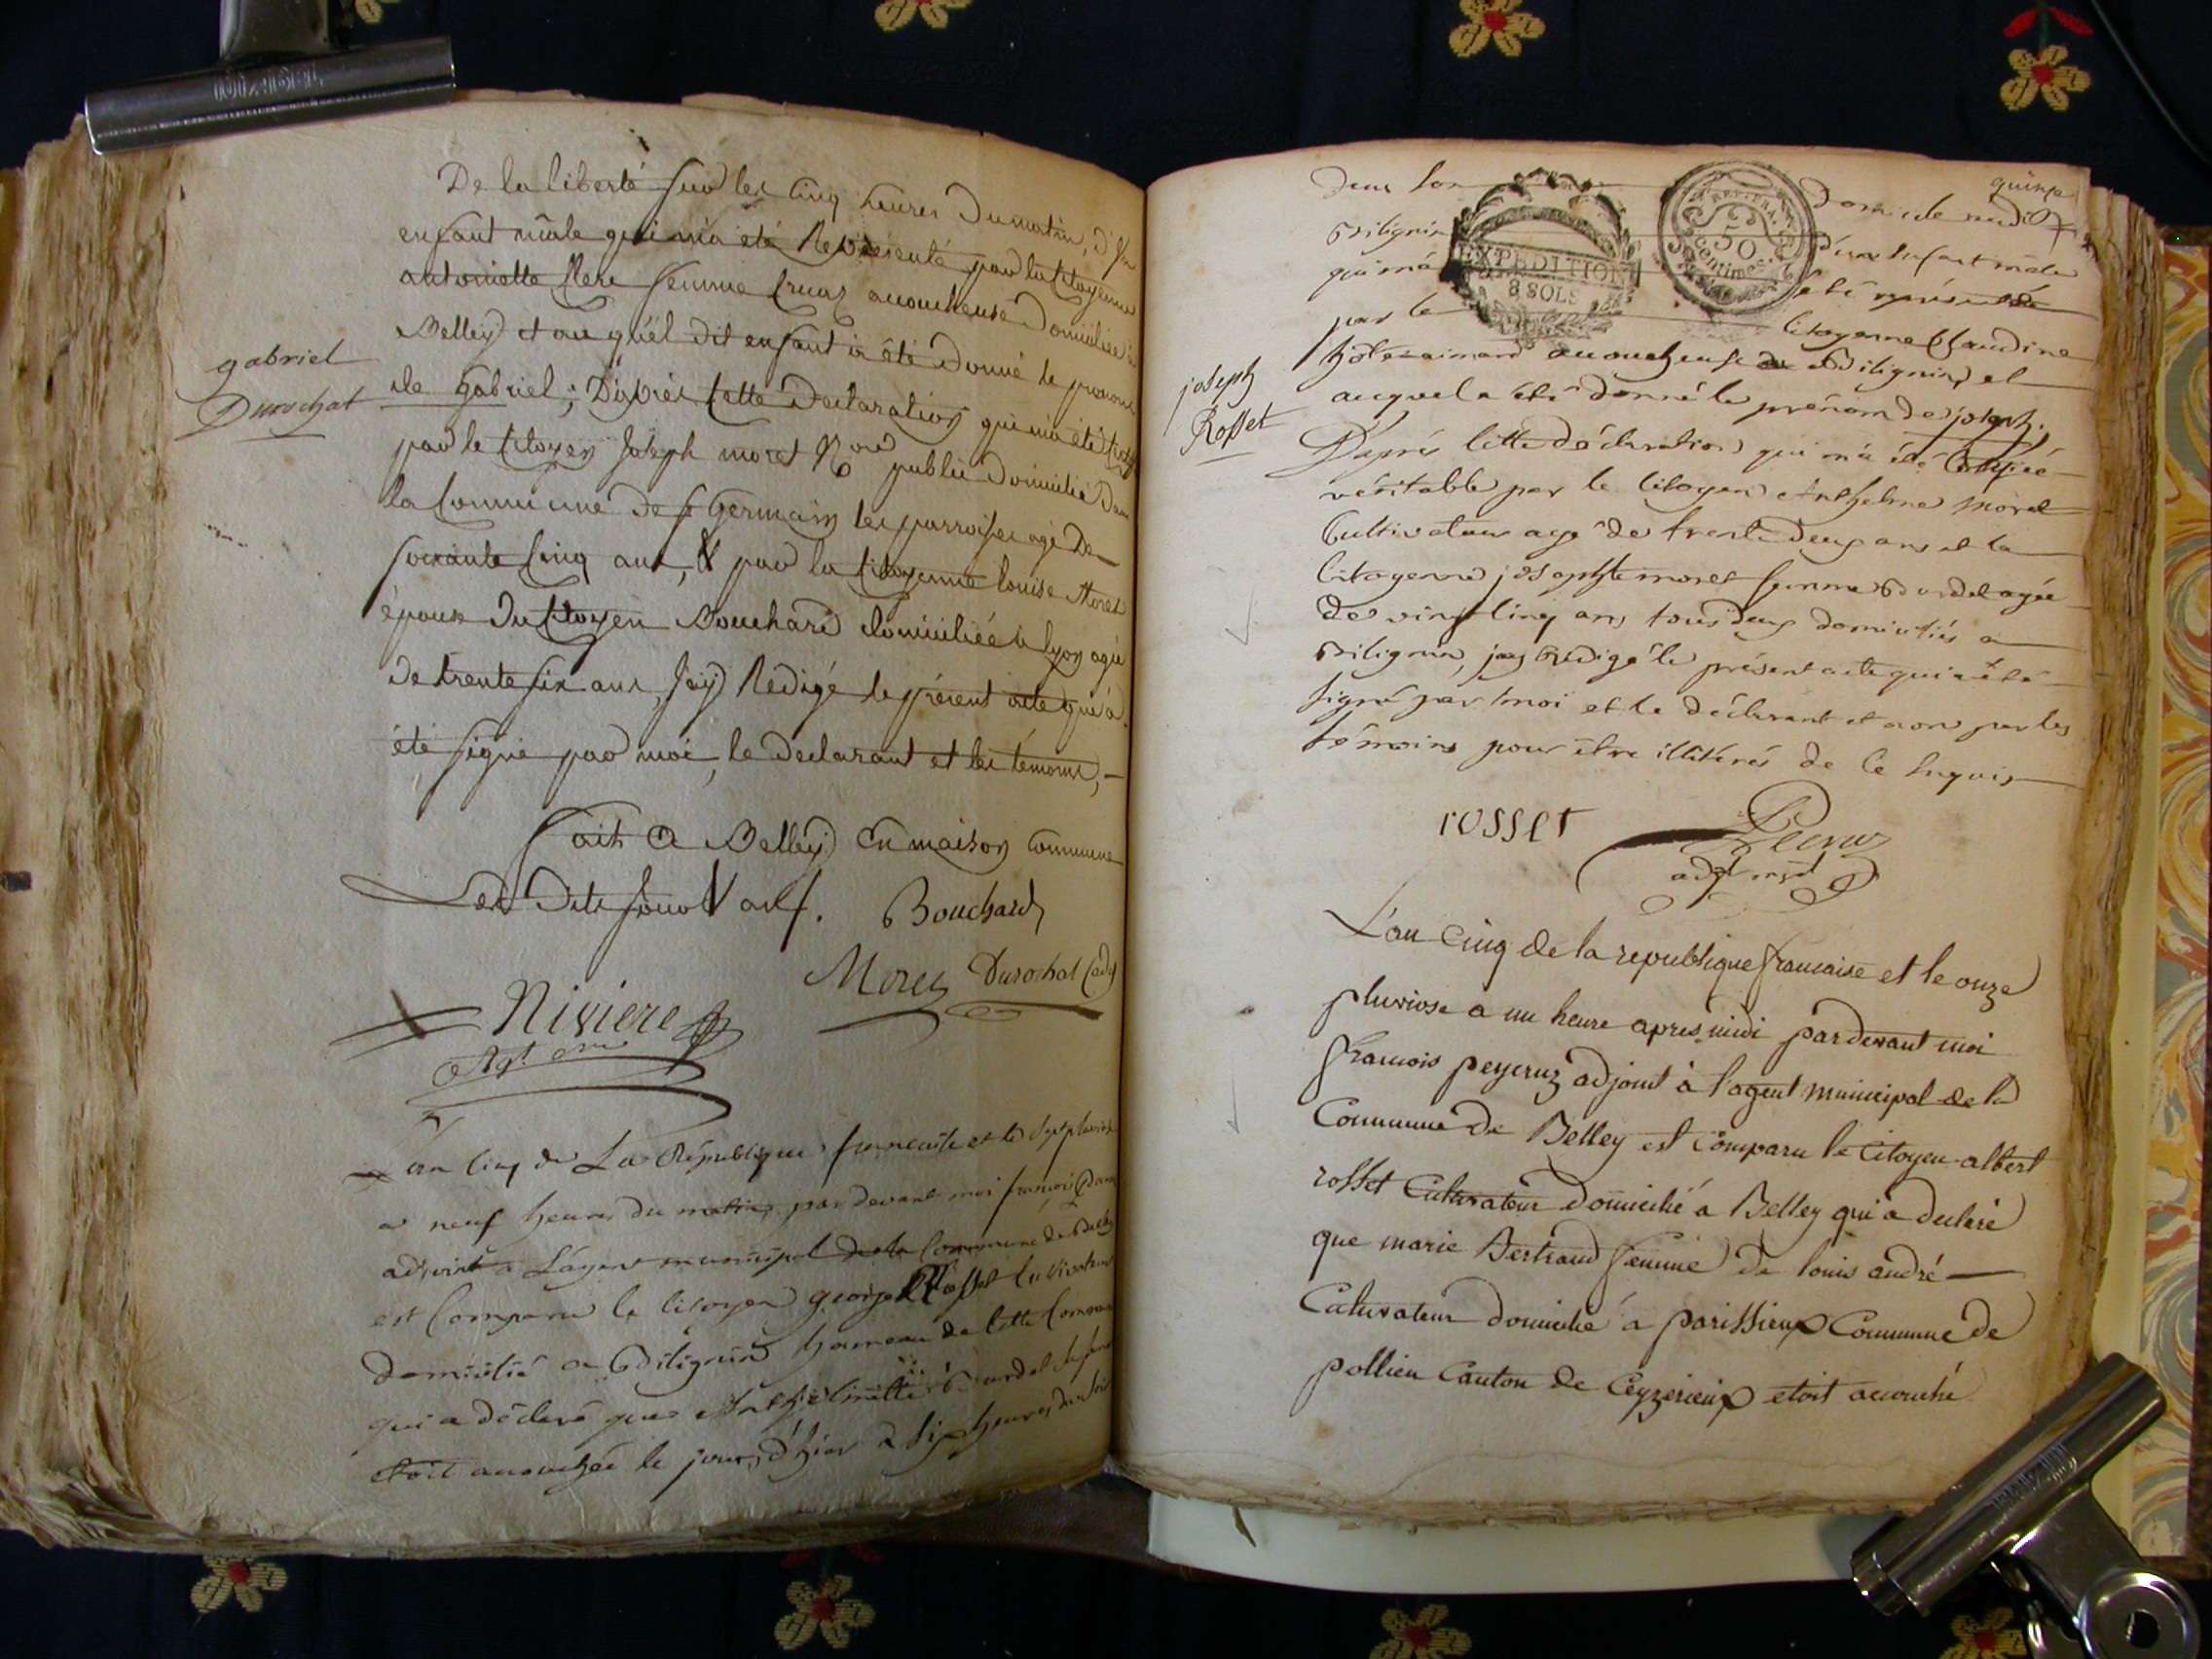 De la liberté sur les cinq heures du matin, d'un
enfant mâle qui m'a été Représenté par la Citoyenne
antoinette femme accoucheuse Domiciliée à
Belley et au quel dit enfant a été Donné le prenom
gabriel
Durochat
de Gabriel; D'après Cette Declaration qui m'a été
par le Citoyen Joseph moret Nore public Domicilié Dans
la Commune de St Germain les parroisses agé De
soixante Cinq ans, & par la Citoyenne louise Moret
épouse Du Citoyen Bouchard domiciliée à lyon agée
De trente six ans, J'ay Redigé le présent acte qui a
été signé par moi, le Declarant et les témoins,
fait a Belley En maison Commune
les Dits jour & an f.
Bouchard
Morez Durochat
Riviere
Agt
an cinq de La République francaise et le Sept pluviose
a neuf heures du matin, par devant moi françois
adjoint a L'agent municipal de la Commune de Belley
est Comparu le Citoyen george Rosset Cultivateur
domicilié a Bilignin hameau de Cette Commune
qui a déclaré que Anthelmette Bourdel sa femme
etoit accouchée le jour d'hier a six heures du soir
quinze
Dans son Domicile audit
Bilignin d'un Enfant mâle
EXPEDITION
8 SOLS
50
Centimes
qui m'a été représenté
par la Citoyenne Claudine
accoucheuse de Bilignin, et
joseph
Rosset
auquel a été donné le prénom de joseph.
D'après Cette déclaration qui m'a été Certifiée
véritable par le Citoyen Anthelme Moret
Cultivateur agé de trente deux ans et la
Citoyenne josephte moret femme Bourdel agée
de vingt Cinq ans, tous deux domiciliés a
Bilignin, j'ay rédigé le présent acte qui a été
signé par moi et le déclarant et non par les
témoins pour être illitérés de Ce Enquis
rosset
Peycruz
adjt mpl
L'an Cinq de la republique francaise et le onze
pluviose a un heure apres midi pardevant moi
francois peycruz adjoint à l'agent municipal de la
Commune de Belley est Comparu le Citoyen albert
rosset Cultivateur domicilié a Belley qui a declaré
que marie Bertrand femme de louis andré
Cultivateur domicilié a parissieux Commune de
pollieu Canton de Ceyzerieux etoit accouché